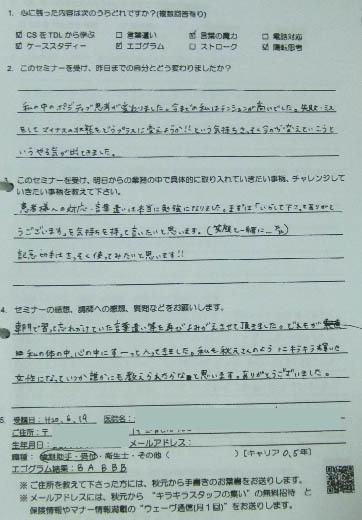 1. 心に残った内容は次のうちどれですか?(複数回答有り)
☑ CSをTDLから学ぶ □ 言葉遣い ☑ 言葉の魔力 □ 電話対応
☑ ケーススタディー ☑ エゴグラム □ ストローク ☑ 陽転思考
2. このセミナーを受け、昨日までの自分とどう変わりましたか?
私の中のポジティブ思考が変わりました。今までの私はテンションが高いでした。失敗・ミス
をしてマイナスの状態をどうプラスに変えようか!!という気持ちを、すぐ変えていこうと
いうやる気が出てきました。
3. このセミナーを受け、明日からの業務の中で具体的に取り入れていきたい事務、チャレンジして
いきたい事務を教えて下さい。
患者様への対応・言葉遣いは本当に勉強になりました。まずは「いらして下さい、ありがと
うございます」を気持ちを持って言いたいと思います。(笑顔と一緒に)
記念切手はさっそく使ってみたいと思います!!
4. セミナーの感想、講師への感想、質問などをお願いします。
専門で習って忘れかけていた言葉遣い等を再びよみがえさせて頂きました。どれもが
私の体の中、心の中にすーっと入ってきました。私も秋元さんのようにキラキラ輝いた
女性になっていつか誰かにも教えられたらなと思います。ありがとうございました。
5. 受講日:H20.6.19 医院名:
ご住所:〒
生年月日: メールアドレス:
職種:歯科助手・受付・衛生士・その他( )[キャリア0.5年]
エゴグラム結果:BABBB
※ご住所を教えて下さった方には、秋元から手書きのお葉書をお送りします。
※メールアドレスには、秋元から“キラキラスタッフの集い”の無料招待 と
保険情報やマナー情報満載の“ウェーブ通信(月1回)”をお送りします。